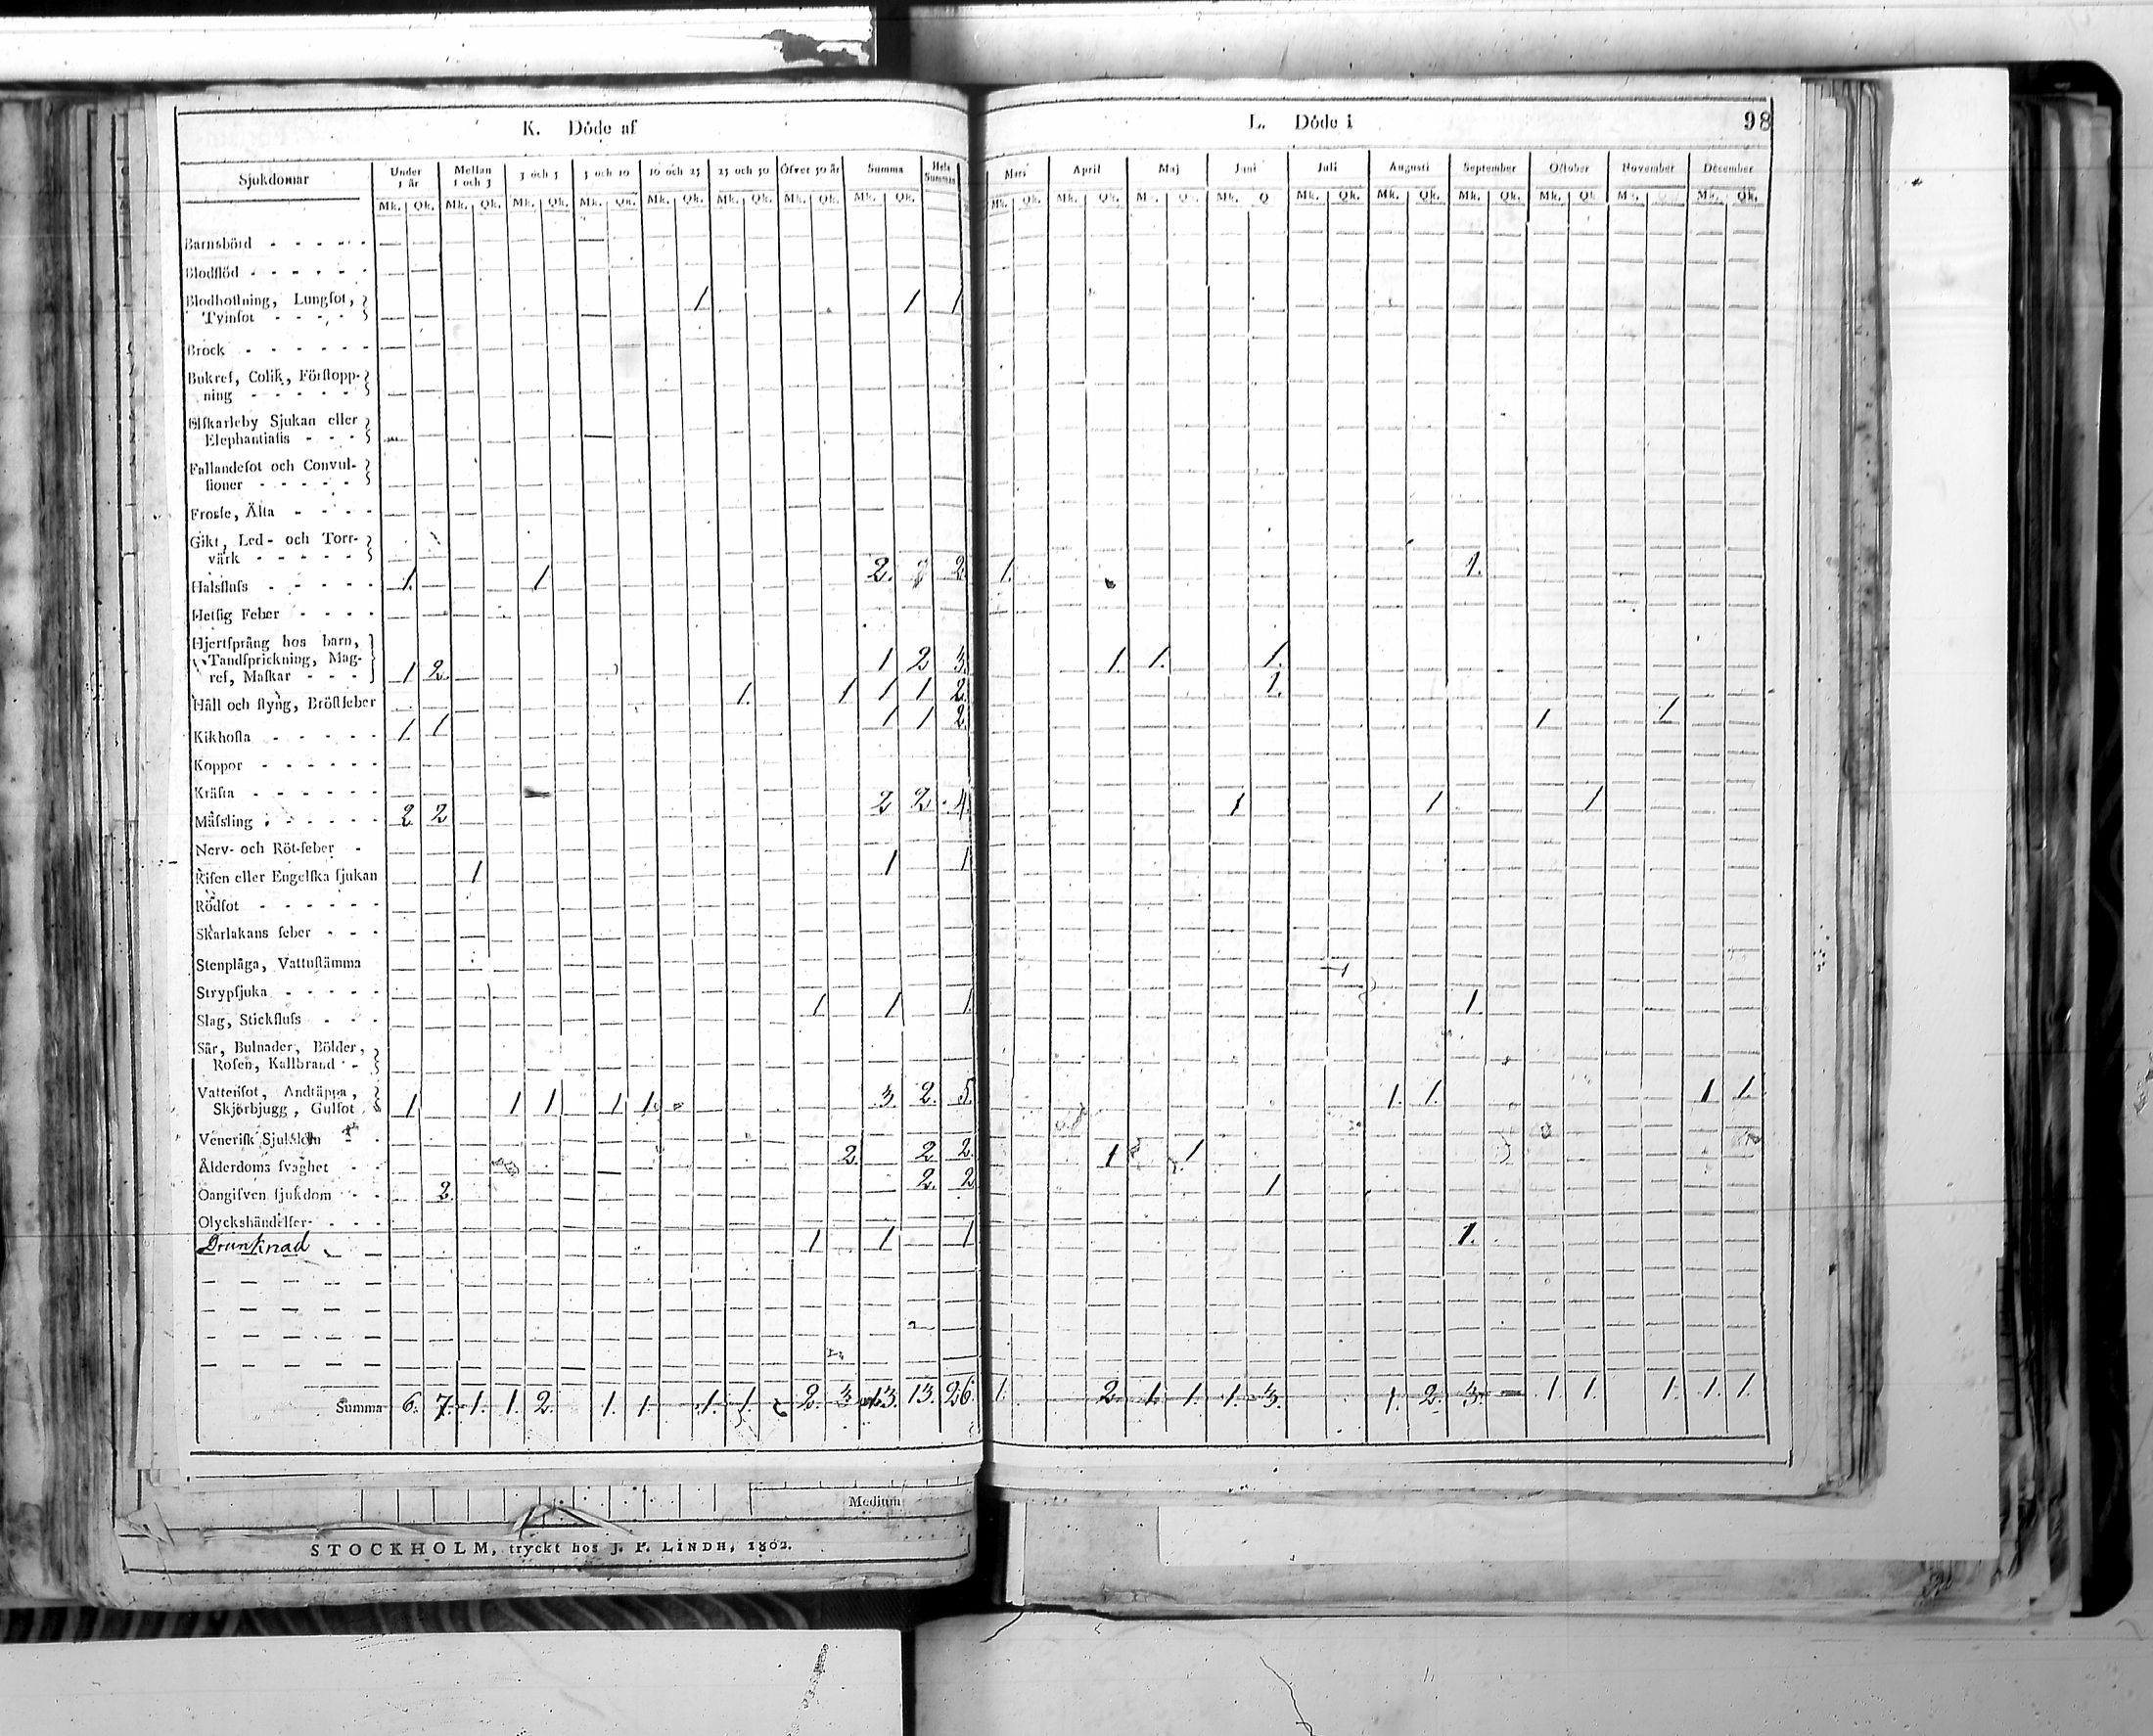 K. Döde af
L. Döde i
98
Sjukdomar
Under 1 år
Mellan 1 och 3
3 och 5
5 och 10
10 och 25
25 och 50
Öfver 50 år
Summa
Hela Summan
Mars
April
Maj
Juni
Juli
Augusti
September
October
November
December
Mk. Qk. Mk. Qk. Mk. Qk. Mk. Qk. Mk. Qk. Mk. Qk. Mk. Qk. Mk. Qk.
Mk. Qk. Mk. Qk. Mk. Qk. Mk. Q Mk. Qk. Mk. Qk. Mk. Qk. Mk. Qk Mk. Qk. Mk. Qk.
Barnsbörd
Blodflöd
Blodhoſtning, Lungſot,
Tvinſot 1 1 1
Brock
Bukref, Colik, Förſtopp-
ning
Elſkarleby Sjukan eller
Elephantiaſis
Fallandeſot och Convul-
ſioner
Frosſe, Älta
Gikt, Led- och Torr-
värk
Halsfluſs 1. 1 2. 2 1. 1.
Hetſig Feber
Hjertſprång hos barn,
Tandſprickning, Mag-
ref, Maſkar 1 2. 1 2 3. 1. 1. 1.
Håll och ſtyng, Bröſtfeber 1. 1 1 1 2. 1.
Kikhoſta 1. 1 1 1 2. 1 1
Koppor
Kräfta
Mäſsling 2 2 2 2 4. 1 1 1
Nerv- och Röt-feber
Riſen eller Engelſka ſjukan 1 1 1
Rödſot
Skarlakans feber
Stenplåga, Vattuſtämma
Strypſjuka
Slag, Stickfluſs 1 1 1. 1.
Sår, Bulnader, Bölder,
Roſen, Kallbrand
Vattenſot, Andtäppa,
Skjörbjugg, Gulſot 1 1 1 1 1. 3. 2. 5. 1. 1. 1 1.
Veneriſk Sjukdom
Ålderdoms ſvaghet 2. 2. 2. 1 1
Oangifven ſjukdom 2. 2. 2 1
Olyckshändelſer
Drunknad 1 1 1 1.
Summa 6. 7. 1. 1. 2. 1. 1. 1. 1. 2. 3 13. 13. 26. 1. 2. 1. 1. 1. 3. 1. 2. 3. 1. 1. 1. 1. 1.
Medium
STOCKHOLM, tryckt hos J. P. LINDH, 1802.